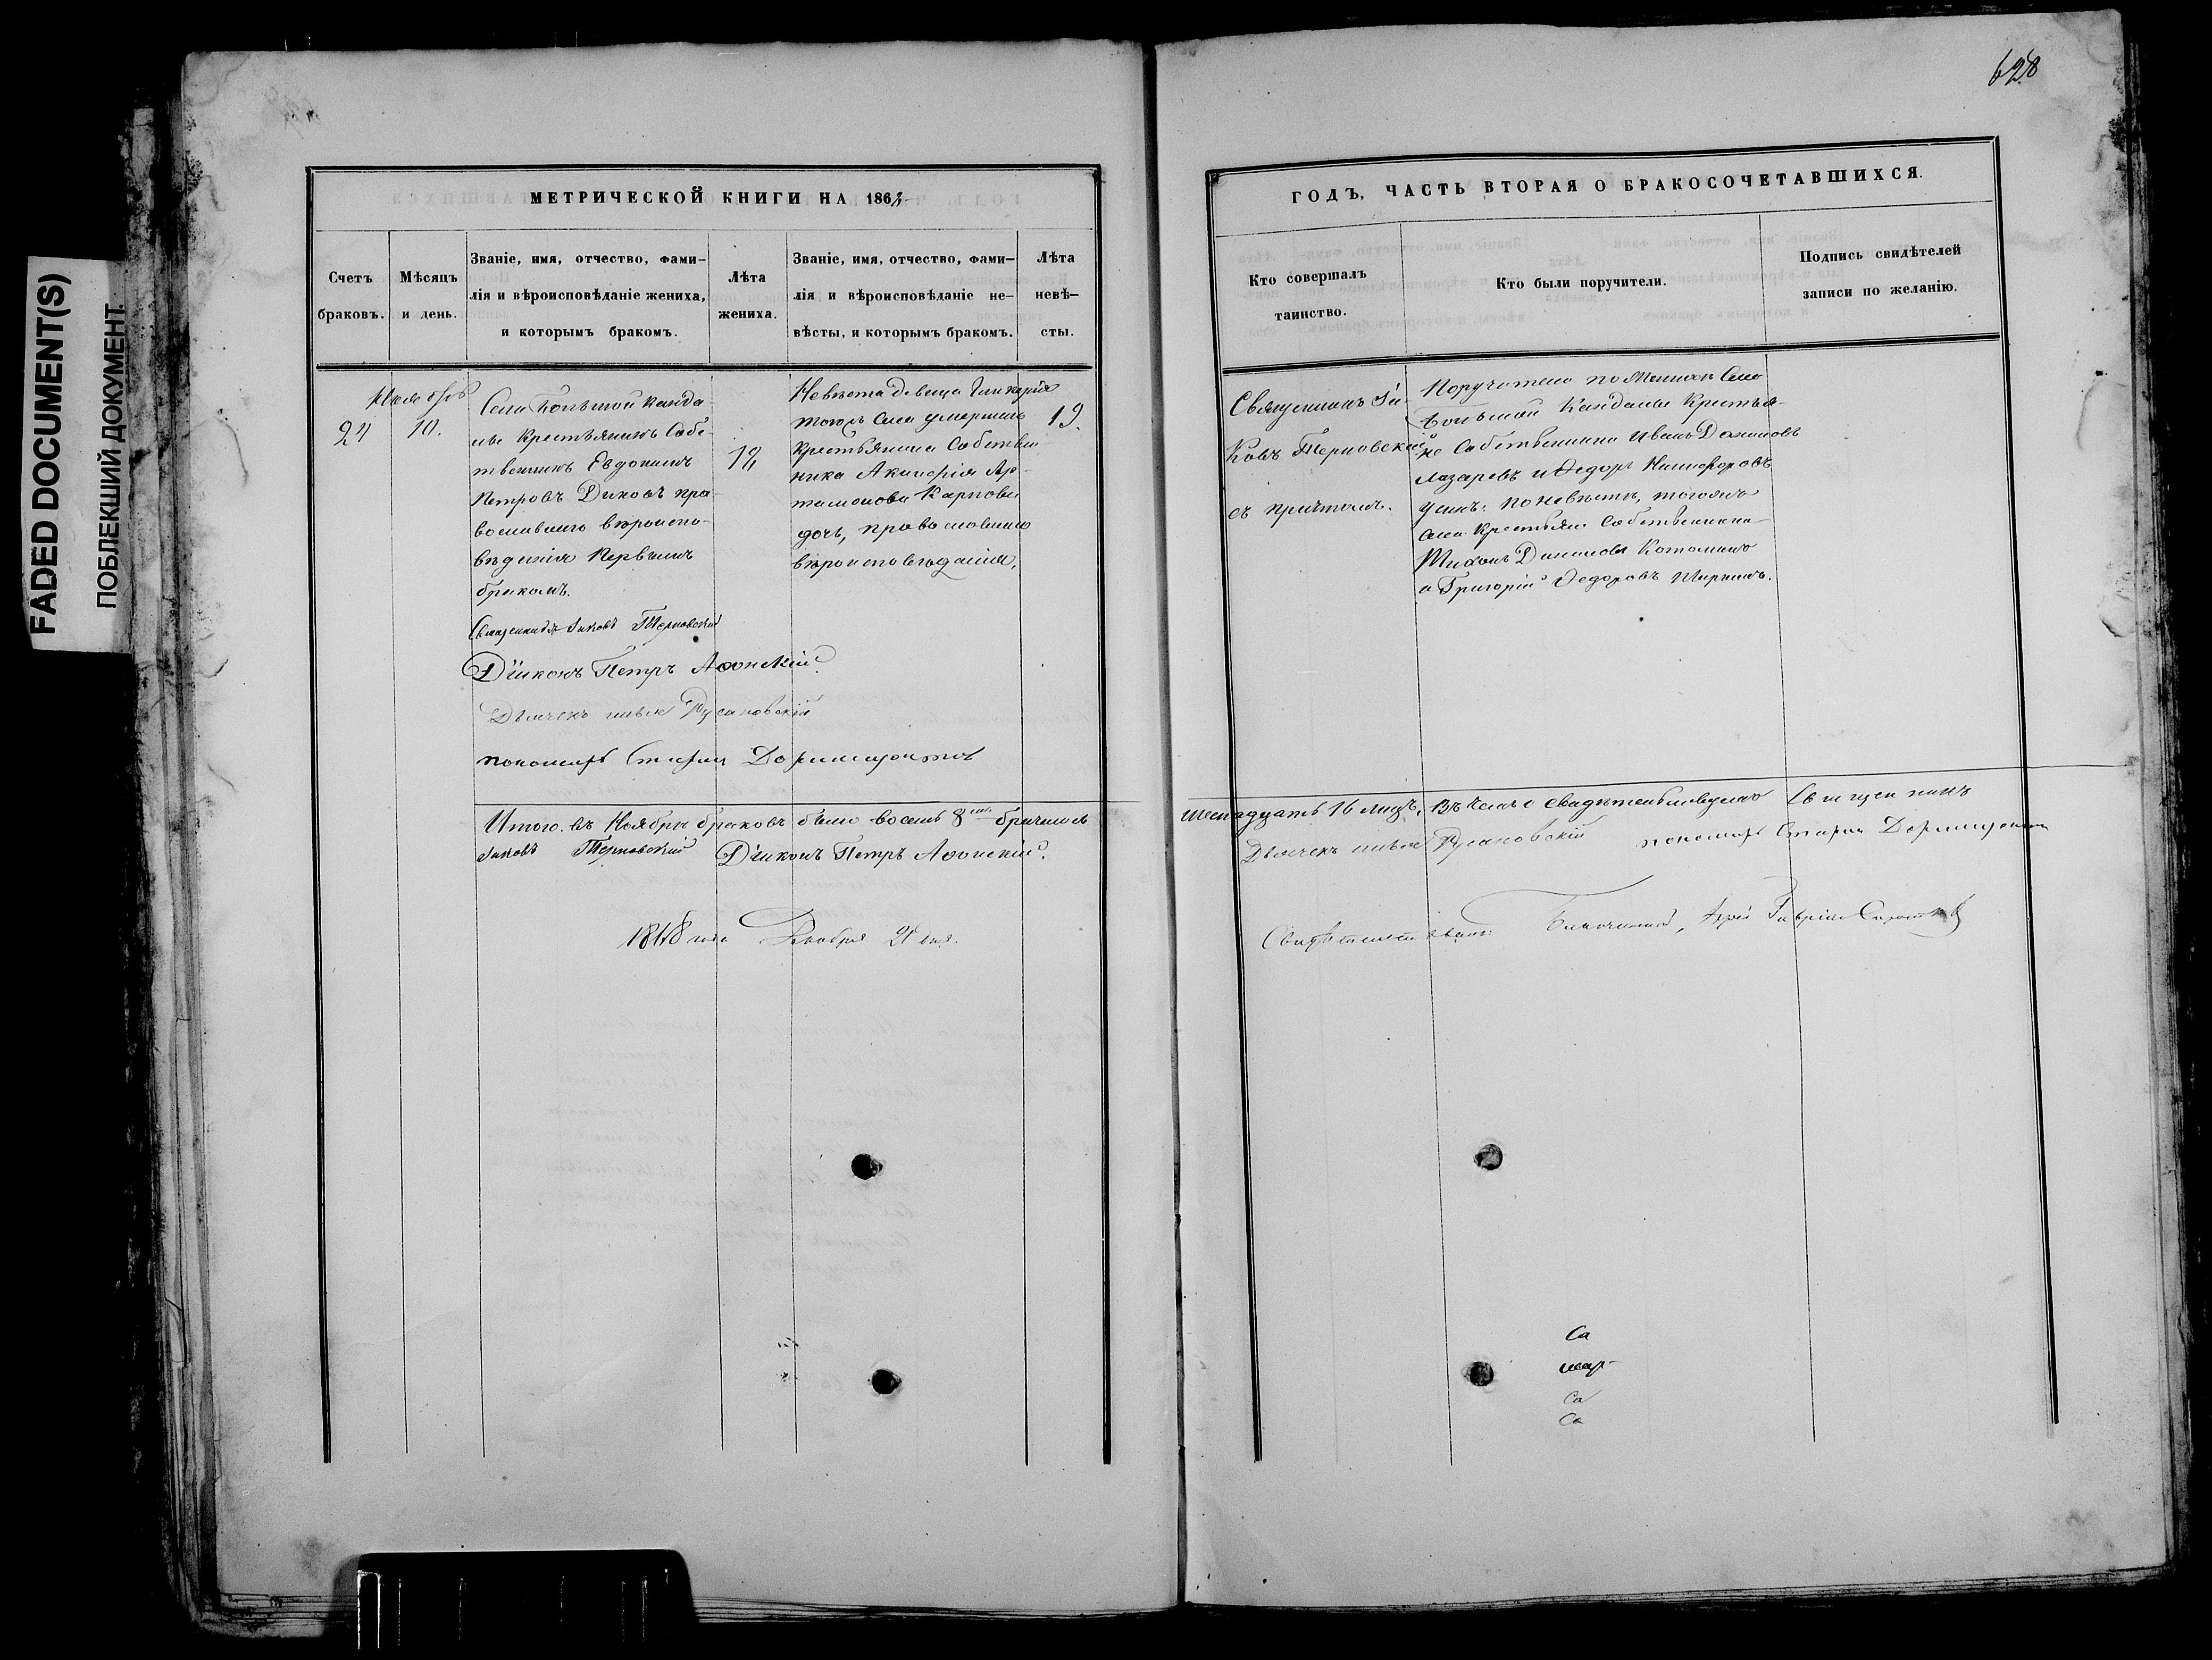 FADED DOCUMENT(S)
ПОБЛЕКШИЙ ДОКУМЕНТ.
628
МЕТРИЧЕСКОЙ КНИГИ НА 1868
ГОДЪ, ЧАСТЬ ВТОРАЯ О БРАКОСОЧЕТАВШИХСЯ.
Счетъ
браковъ.
Мѣсяцъ
и день.
Званіе, имя, отчество, фами-
лія и вѣроисповѣданіе жениха,
и которымъ бракомъ.
Лѣта
жениха.
Званіе, имя, отчество, фами-
лія и вѣроисповѣданіе не-
вѣсты, и которымъ бракомъ.
Лѣта
невѣ-
сты.
Кто совершалъ
таинство.
Кто были поручители.
Подпись свидѣтелей
записи по желанію.
Ноябрь
24
10.
Села Большой Канда-
лы Крестьянинъ Собс-
твенникъ Евдокимъ
Петровъ Диковъ пра-
вославнаго вѣроиспо-
вѣданія Первымъ
бракомъ.
18
Невѣста дѣвица Гликерія
тогожъ Села умершаго
Крестьянина Собствен
ника Ар-
тамонова Карпова
дочь, православнаго
вѣроисповѣданія.
19.
Священникъ Іа-
ковъ Терновскій
съ причтомъ.
Поручители по Женихѣ Села
Большой Кандалы Крестья-
не Собственники Иванъ
Лазаревъ и Ѳедоръ Никифоровъ
по невѣстѣ, тогожъ
села Крестьяне Собственники
Тихонъ
и Григорій Ѳедоровъ Ширкинъ.
Священникъ Іаковъ Терновскій
Діаконъ Петръ Аѳонскій
Дьячекъ Русановскій
пономарь
Итого. въ Ноябрѣ браковъ было восемь 8 брачились
шеснадцать 16 лицъ. Въ чемъ и свидѣтельствуемъ Священникъ
Іаковъ Терновскій Діаконъ Петръ Аѳонскій.
Дьячекъ Русановскій пономарь
1868 года Декабря 21 дня.
Свидѣтельствовалъ Благочинный, Іерей Гавріилъ
Са
мар-
Са
Са